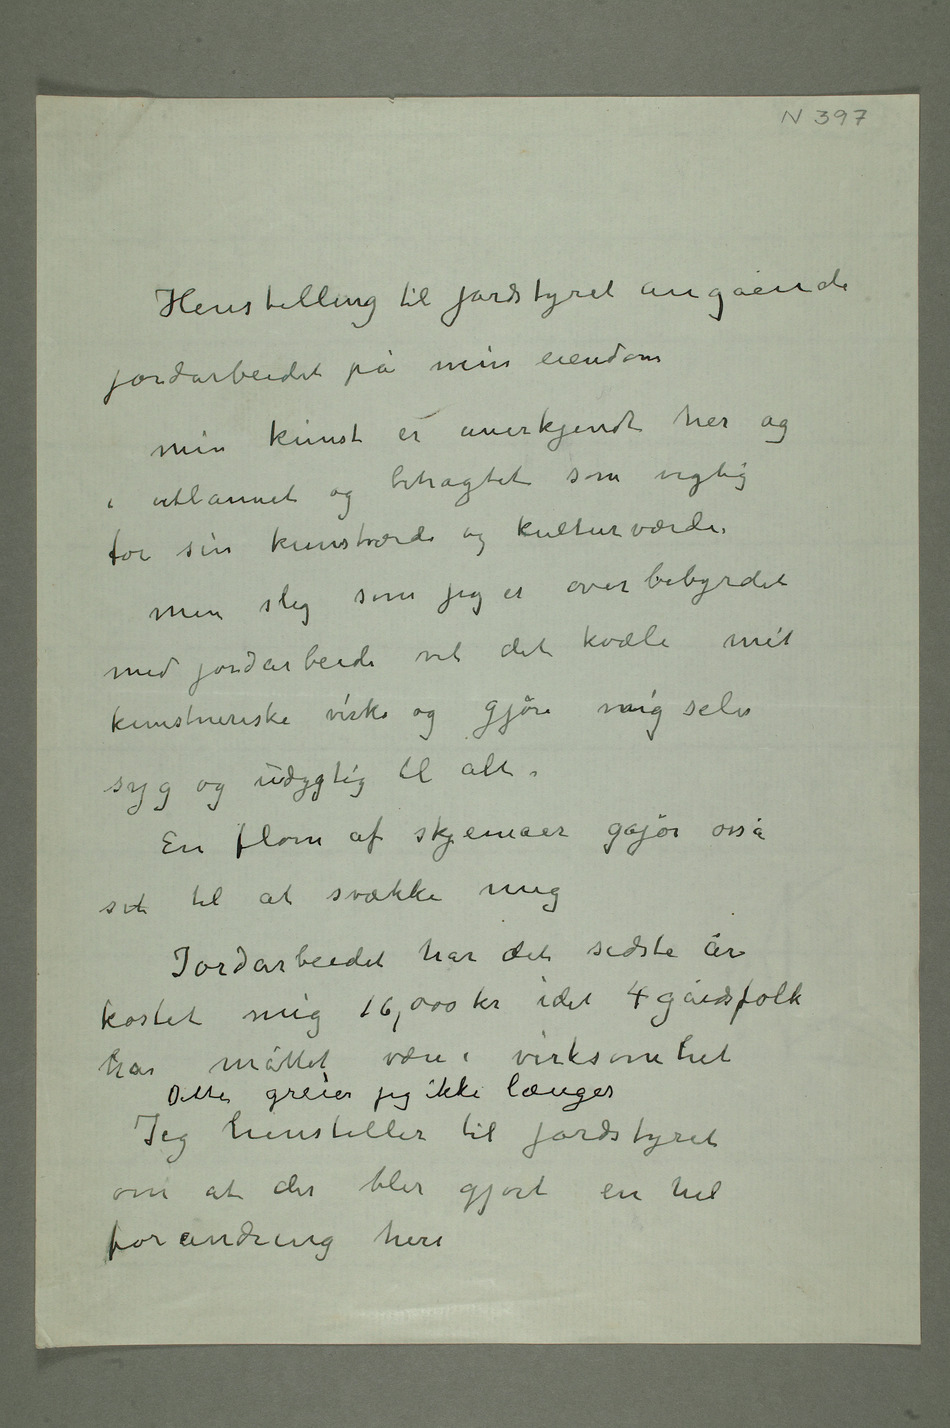 N 397
Henstilling til jordstyret angående
jordarbeidet på min eiendom
min kunst er anerkjendt her og
i utlannet og betragtet som vigtig
for sin kunstværdi og kulturværdi.
men slig som jeg er overbebyrdet
med jordarbeide vil det kvæle mit
kunstneriske virke og gjøre mig selv
syg og udygtig til alt.
En flom af skjemaer gjør osså
sit til at svække mig
Jordarbeidet har det sidste år
kostet mig 16,000 kr idet 4 gårdsfolk
har måttet være i virksomhet
Dette greier jeg ikke længer
Jeg henstiller til jordstyret
om at der blir gjort en hel
forandring heri